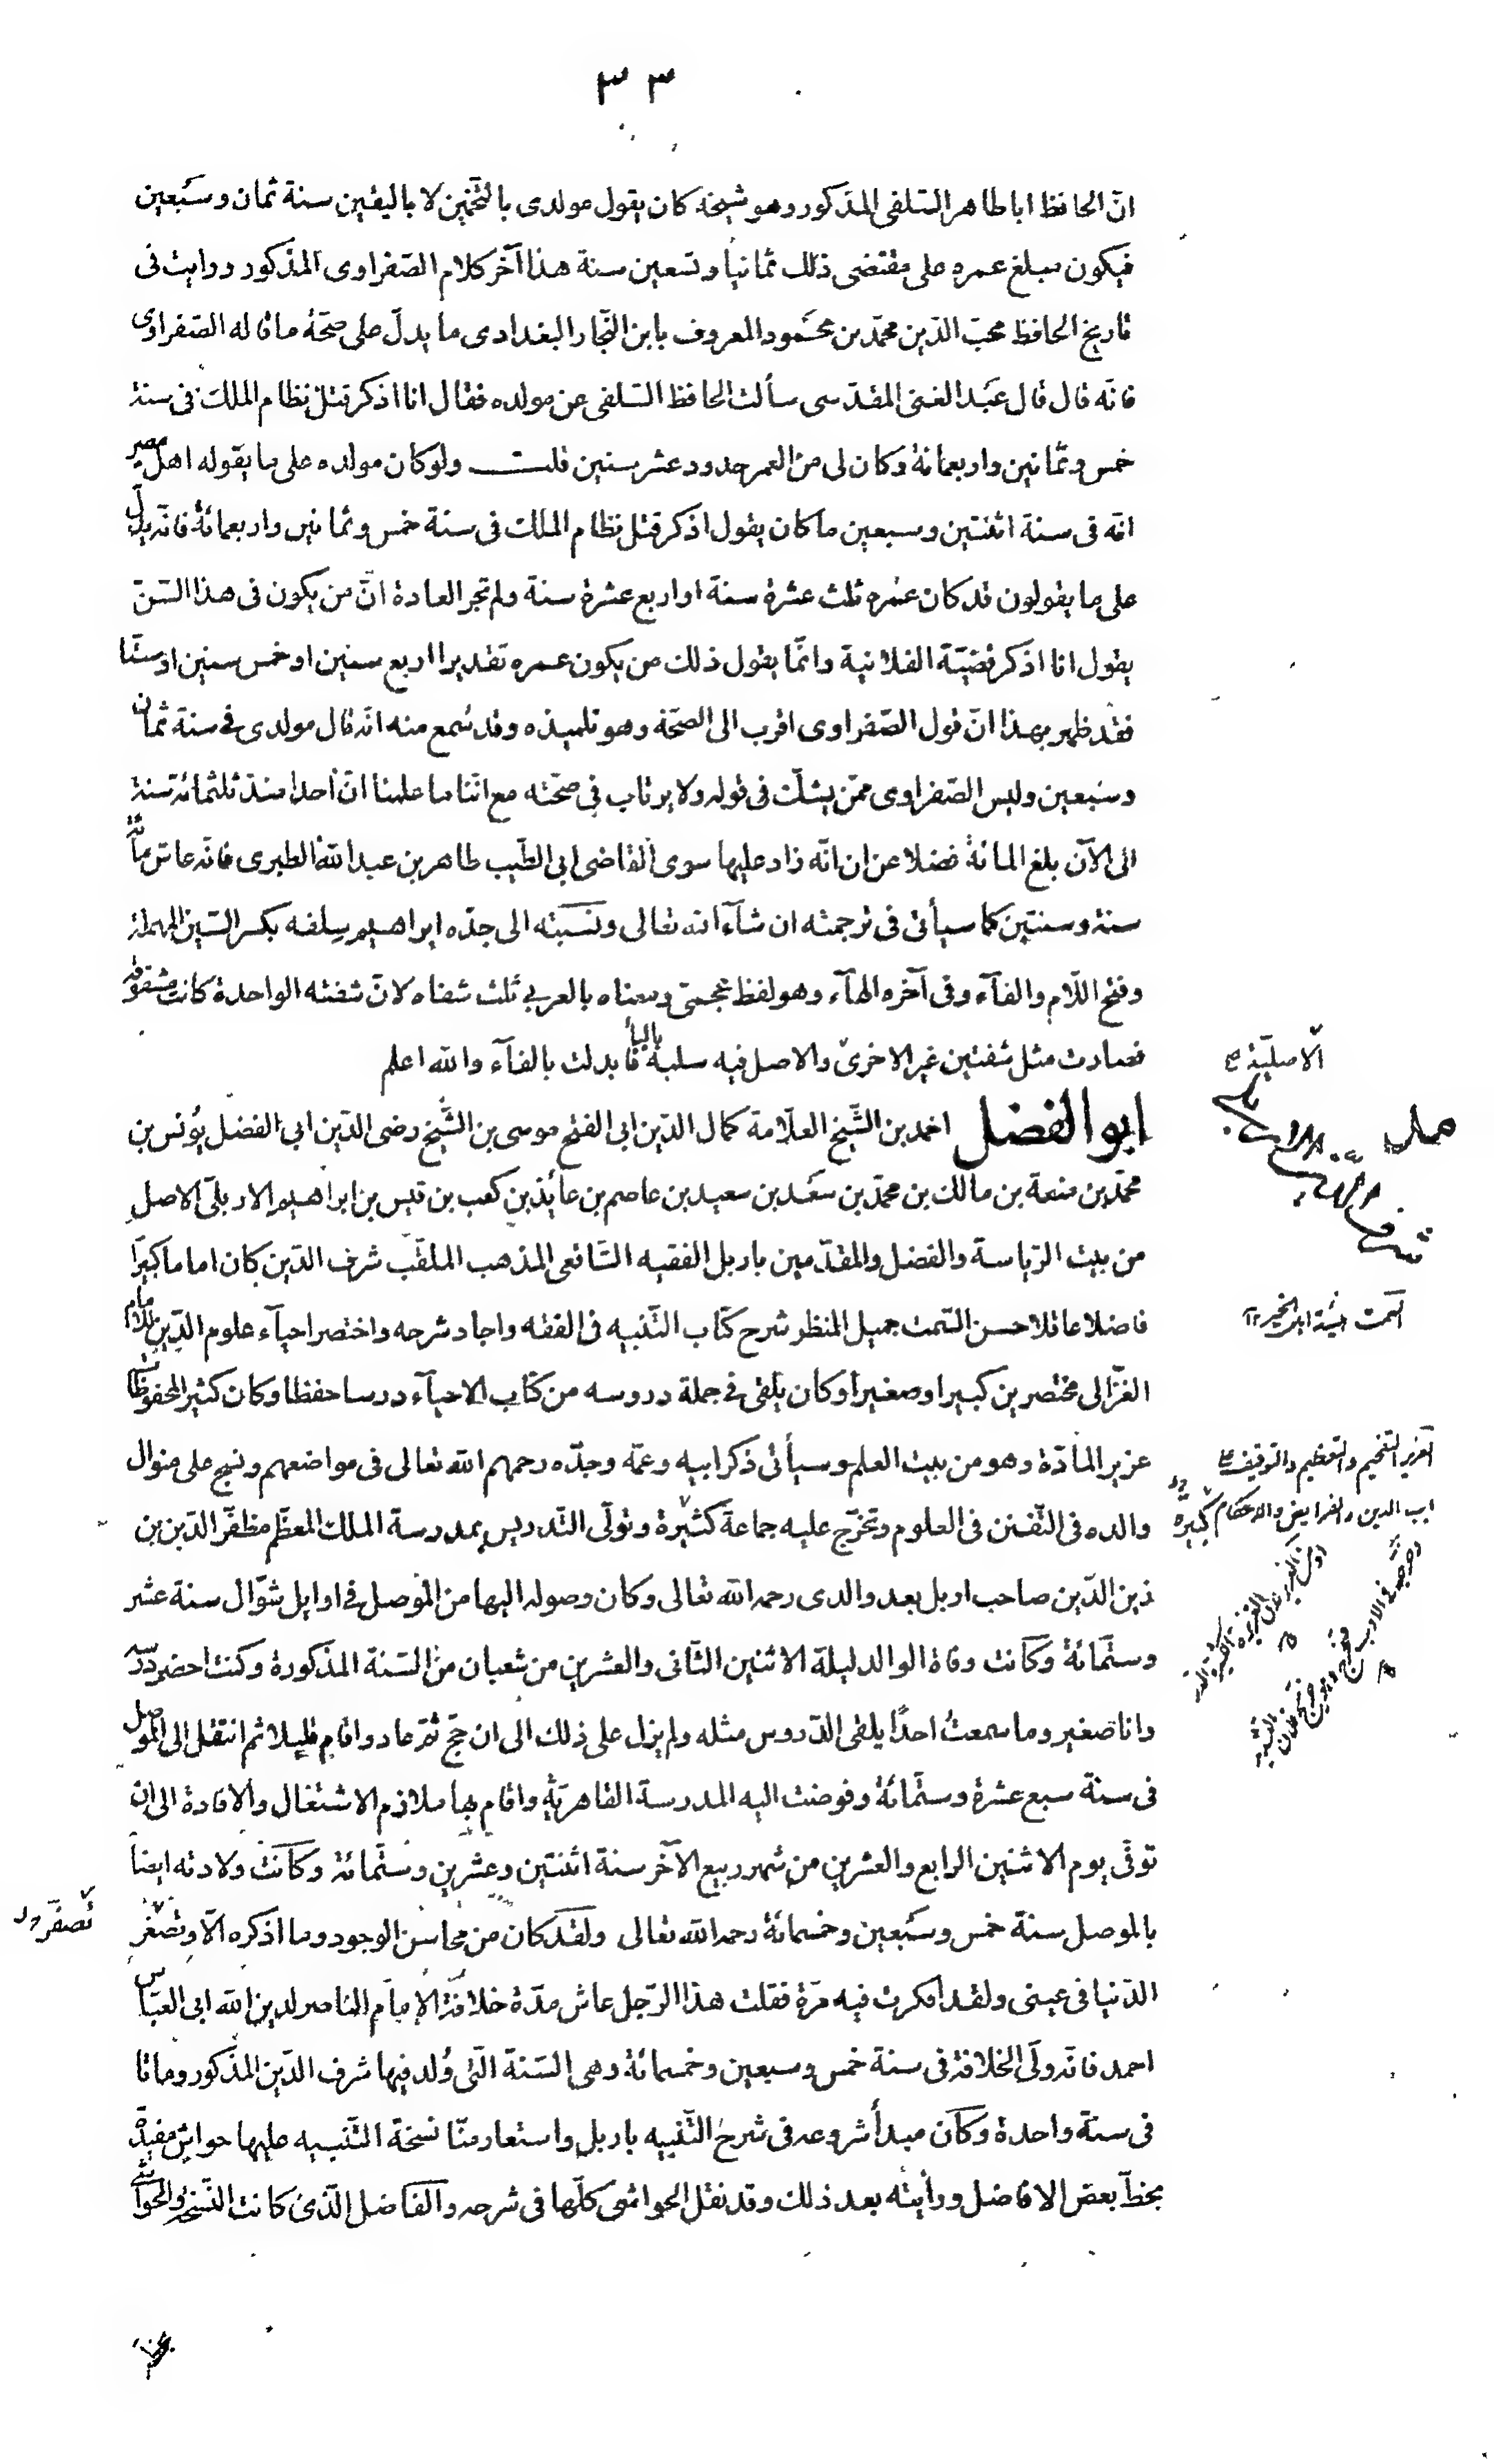 ٣٣
انّ الحافظ ابا طاهر السّلفى المذكور وهو شيخه كان يقول مولدى بالتّخمين لا باليقين سنة ثمان وسَبعين
فيكون مبلغ عمره على مقتضى ذلك ثمانيا وتسعين سنة هذا آخر كلام الصّفراوى المذكور ورايت فى
تاريخ الحافظ محبّ الدّين محمّد بن محمود المعروف بابن النّجار البغدادى ما يدلّ على صحّة ما قاله الصّفراوى
فانّه قال قال عَبد الغنى المقدّسى سألت الحافظ السّلفى عن مولده فقال انا اذكر قتل نظام الملك فى سنة
خمس وثمانين واربعمائة وكان لى من العمر حدود عشر سنين قلت ولو كان مولده على ما يقوله اهل مصر
انّه فى سنة اثنتين وسبعين ما كان يقول اذكر قتل نظام الملك فى سنة خمس وثمانين واربعمائة فانّه يدلّ
على ما يقولون قد كان عمره ثلث عشرة سنة او اربع عشرة سنة ولم تجر العادة انّ من يكون فى هذا السّنّ
يقول انا اذكر قضيّة الفلانية وانّما يقول ذلك من يكون عمره تقديرا اربع سنين او خمس سنين او ستّا
فقد ظهر بهذا انّ قول الصّفراوى اقرب الى الصحّة وهو تلميذه وقد سُمع منه انّه قال مولدى فى سنة ثمان
وسَبعين وليس الصّفراوى ممّن يشكّ فى قوله ولا يرتاب فى صحّته مع انّنا ما علمنا انّ احدا منذ ثلثمائة سنة
الى الآن بلغ المائة فضلا عن ان انّه زاد عليها سوى القاضى ابى الطّيب طاهر بن عبد الله الطبرى فانّه عاش مائة
سنة وسنتين كما سيأتى فى ترجمته ان شآء الله تعالى ونسَبته الى جدّه ابراهيم سِلفه بكسر السّين المهملة
وفتح اللّام والفآء وفى آخره الهآء وهو لفظ عجمىّ ومعناه بالعربى ثلث شفاه لانّ شفته الواحدة كانت مشقوقة
فصارت مثل شفتين غير الاخرى والاصل فيه سلبه بالبأ فابدلت بالفآء والله اعلم
الاصليّة
ابو الفضل احمد بن الشّيخ العلّامة كمال الدّين ابى الفتح موسى بن الشّيخ رضى الدّين ابى الفضل يُونس بن
محمّد بن منعة بن مالك بن محمّد بن سعَد بن سعيد بن عاصم بن عايُذ بن كعب بن قيس بن ابراهيم الاربلىّ الاصل
من بيت الرّياسة والفضل والمقدّمين باربل الفقيه الشافعى المذهب الملقّب شرف الدّين كان اماما كبيرًا
فاضلا عاقلا حسن السّمت جميل المنظر شرح كتاب التّنبيه فى الفقه واجاد شرحه واختصر احيآء علوم الدّين للامام
السمت هيئة اهل الخير
الغزّالى مختصرين كبيرا وصغيرا وكان يلقى فى جملة دروسه من كتاب الاحيآء درسا حفظا وكان كثير المحفوظات
غزير المادّة وهو من بيت العلم وسيأتى ذكر ابيه وعمّه وجدّه رحمهم الله تعالى فى مواضعهم ونسج على منوال
والده فى التّفنن فى العلوم وتخرّج عليه جماعة كثيرة وتولّى التّدريس بمدرسة الملك المعظّم مظفّر الدّين بن
زين الدّين صاحب اربل بعد والدى رحمه الله تعالى وكان وصوله اليها من الموصل فى اوايل شوّال سنة عشر
وستّمائة وكانت وفاة الوالد ليلة الاثنين الثانى والعشرين من شعبان من السّنة المذكورة وكنت احضر درسه
وانا صَغير وما سمعتُ احدًا يلقى الدّروس مثله ولم يزل على ذلك الى ان حجّ ثمّ عاد واقام قليلا ثم انتقل الى الموصل
فى سنة سبع عشرة وستّمائة وفوضت اليه المدرسة القاهريّة واقام بها ملازم الاشتغال والافادة الى ان
توفّى يوم الاثنين الرابع والعشرين من شهر ربيع الآخر سنة اثنتين وعشرين وستّمائة وكانت ولادته ايضا
بالموصل سنة خمس وسَبعين وخمسمائة رحمه الله تعالى ولقد كان من محاسن الوجود وما اذكره الّا وتصغر
الدّنيا فى عينى ولقد افكرت فيه مرّة فقلت هذا الرّجل عاش مدّة خلافة الإمام الناصر لدين الله ابى العبّاس
احمد فانّه ولّى الخلافة فى سنة خمس وسبعين وخمسمائة وهى السّنة الّتى وُلد فيها شرف الدّين المذكور وماتا
فى سنة واحدة وكان مبدأ شروعه فى شرح التّنبيه باربل واستعار منّا نسخة التّنبيه عليها حواشٍ مفيدة
بخطّ بعض الافاضل ورأيته بعد ذلك وقد نقل الحواشى كلّها فى شرحه والفاضل الّذى كانت النّسخة والحواشى